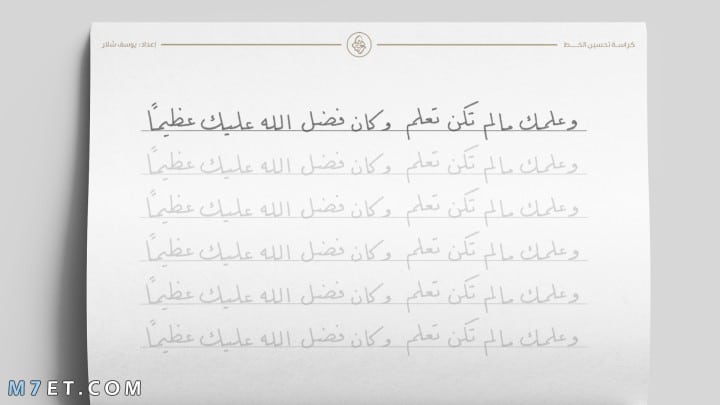 كراسة تحسين الخط إعداد: يوسف شلار
وعلمك مالم تكن تعلم وكان فضل الله عليك عظيمًا
وعلمك مالم تكن تعلم وكان فضل الله عليك عظيمًا
وعلمك مالم تكن تعلم وكان فضل الله عليك عظيمًا
وعلمك مالم تكن تعلم وكان فضل الله عليك عظيمًا
وعلمك مالم تكن تعلم وكان فضل الله عليك عظيمًا
وعلمك مالم تكن تعلم وكان فضل الله عليك عظيمًا
M7ET.COM